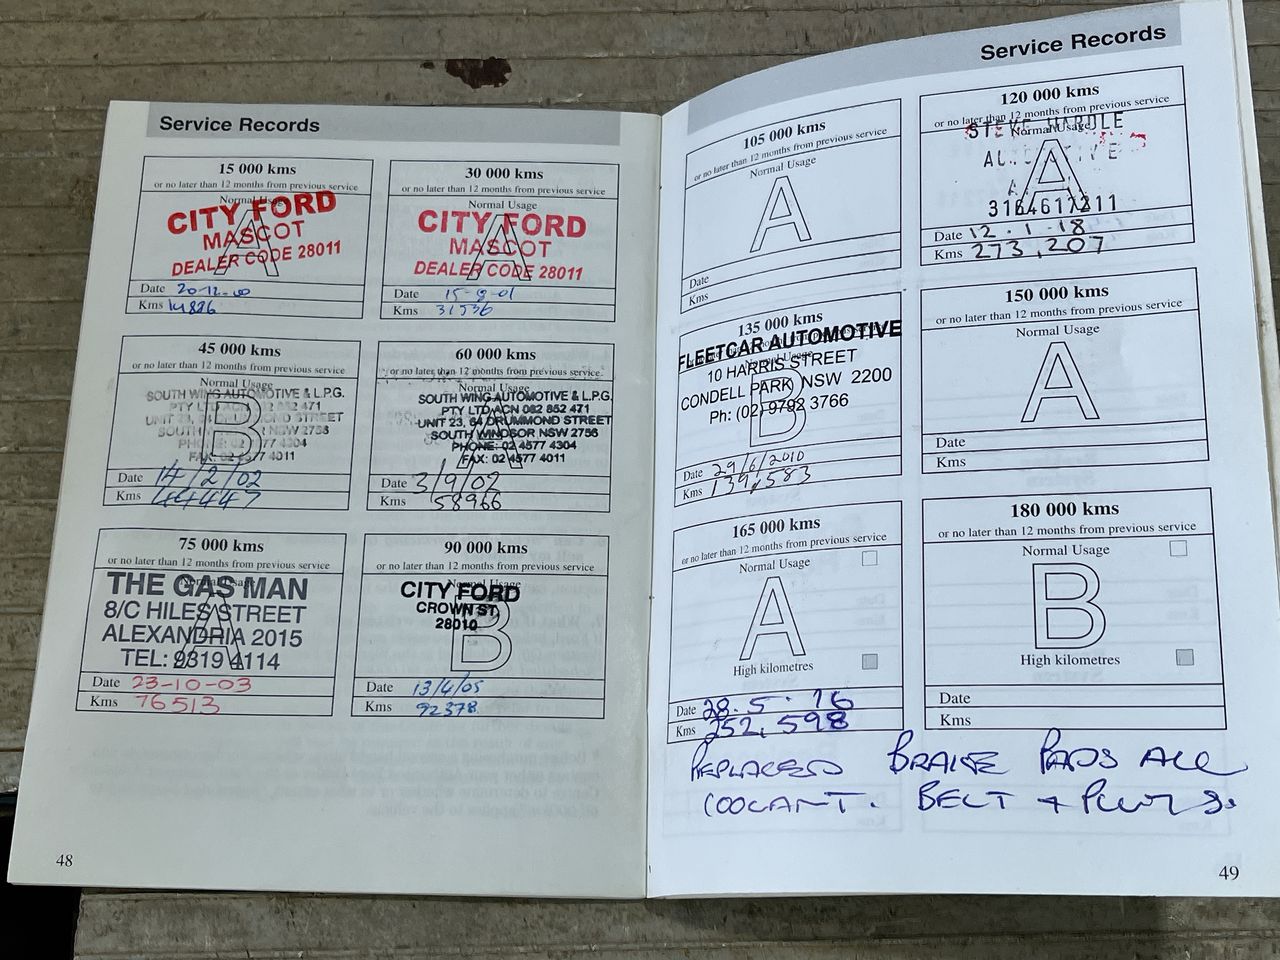 Service Records
15 000 kms
or no later than 12 months from previous service
Normal Usage
A
CITY FORD
MASCOT
DEALER CODE 28011
Date 20-12-00
Kms 14826
30 000 kms
or no later than 12 months from previous service
Normal Usage
A
CITY FORD
MASCOT
DEALER CODE 28011
Date 15-8-01
Kms 31536
45 000 kms
or no later than 12 months from previous service
Normal Usage
B
SOUTH WING AUTOMOTIVE & L.P.G.
PTY LTD ACN 082 852 471
UNIT 23, 64 DRUMMOND STREET
SOUTH WINDSOR NSW 2756
PHONE: 02 4577 4304
FAX: 02 4577 4011
Date 14/2/02
Kms 44447
60 000 kms
or no later than 12 months from previous service
Normal Usage
A
SOUTH WING AUTOMOTIVE & L.P.G.
PTY LTD ACN 082 852 471
UNIT 23, 64 DRUMMOND STREET
SOUTH WINDSOR NSW 2756
PHONE: 02 4577 4304
FAX: 02 4577 4011
Date 3/9/02
Kms 58966
75 000 kms
or no later than 12 months from previous service
Normal Usage
A
THE GAS MAN
8/C HILES STREET
ALEXANDRIA 2015
TEL: 9319 4114
Date 23-10-03
Kms 76513
90 000 kms
or no later than 12 months from previous service
Normal Usage
B
CITY FORD
CROWN ST.
28010
Date 13/4/05
Kms 92378
48
Service Records
105 000 kms
or no later than 12 months from previous service
Normal Usage
A
Date
Kms
120 000 kms
or no later than 12 months from previous service
Normal Usage
A
STEVE HARDLE
3164617211
Date 12.1.18
Kms 273,207
135 000 kms
or no later than 12 months from previous service
Normal Usage
B
FLEETCAR AUTOMOTIVE
10 HARRIS STREET
CONDELL PARK NSW 2200
Ph: (02) 9792 3766
Date 29/6/2010
Kms 139,583
150 000 kms
or no later than 12 months from previous service
Normal Usage
A
Date
Kms
165 000 kms
or no later than 12 months from previous service
Normal Usage
A
High kilometres
Date 28.5.16
Kms 252,598
180 000 kms
or no later than 12 months from previous service
Normal Usage
B
High kilometres
Date
Kms
REPLACED BRAKE PADS ALL
COOLANT. BELT + PLUGS.
49